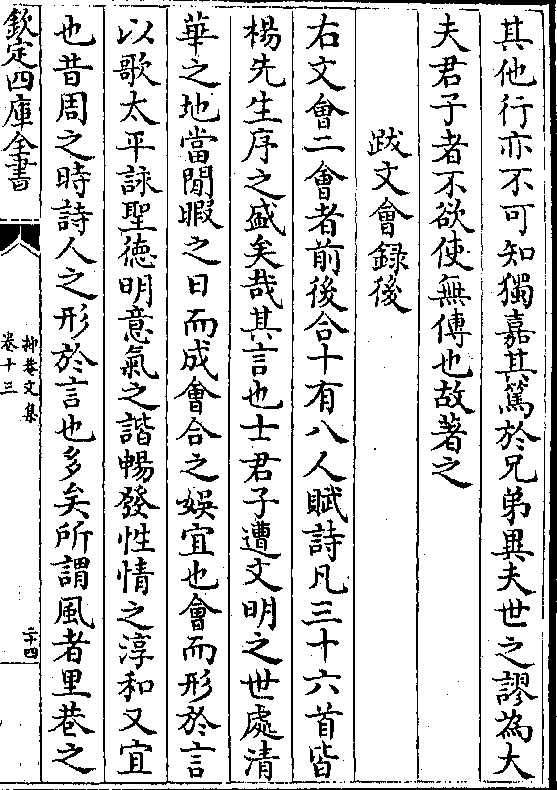 其他行亦不可知獨嘉其篤於兄弟異夫世之謬為大
夫君子者不欲使無傳也故著之
跋文會録後
右文會二會者前後合十有八人賦詩凡三十六首皆
楊先生序之盛矣哉其言也士君子遭文明之世處清
華之地當閒暇之日而成會合之娯宜也會而形於言
以歌太平詠聖徳明意氣之諧暢發性情之淳和又宜
也昔周之時詩人之形於言也多矣所謂風者里巷之
欽定四庫全書
抑菴文集
卷十三
二十四